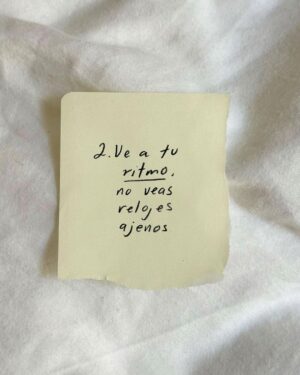 2. Ve a tu
ritmo,
no veas
relojes
ajenos